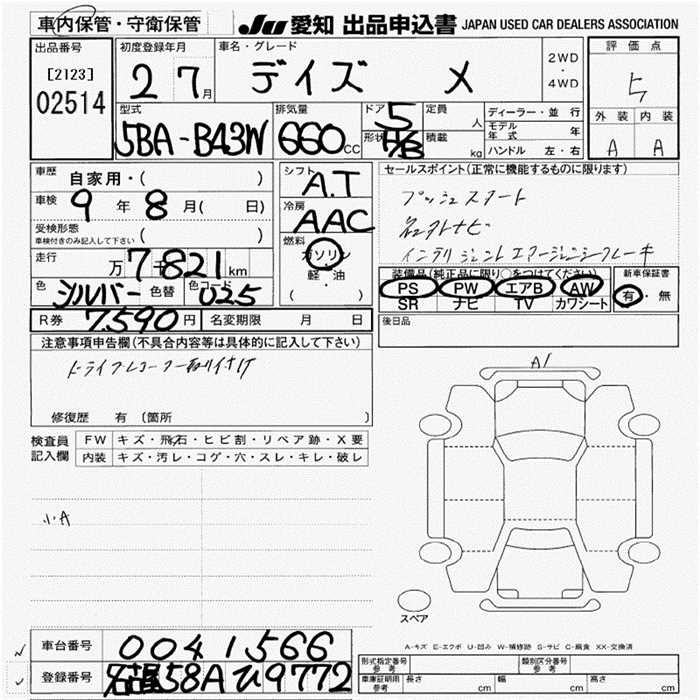 車内保管・守衛保管
JU 愛知 出品申込書 JAPAN USED CAR DEALERS ASSOCIATION
出品番号
[2123]
02514
初度登録年月
2 7月
車名・グレード
デイズ X
2WD
・
4WD
評価点
5
外装 内装
A A
型式
5BA-B43W
排気量
660cc
ドア 5
形状 H/B
定員 人
積載 kg
ディーラー・並行
モデル年式 年
ハンドル 左・右
車歴 自家用・( )
車検 9年8月( 日)
受検形態
車検付きのみ記入して下さい ( )
走行 万7821km
色 シルバー 色替 色コード 025
シフト
A.T
冷房
AAC
燃料
ガソリン
軽・油
( )
セールスポイント(正常に機能するものに限ります)
プッシュスタート
インテリジェントエマージェンシーブレーキ
装備品(純正品に限り○をつけてください)
PS PW エアB AW
SR ナビ TV カワシート
新車保証書
有・無
R券 7,590円 名変期限 月 日
後日品
注意事項申告欄(不具合内容等は具体的に記入して下さい)
ドライブレコーダー取り付け
修復歴 有 〔箇所
検査員
記入欄
FW キズ・飛石・ヒビ割・リペア跡・X要
内装 キズ・汚レ・コゲ・穴・スレ・キレ・破レ
小A
A1
スペア
A-キズ E-エクボ U-凹み W-補修跡 S-サビ C-腐食 XX-交換済
車台番号 0041566
登録番号 名古屋58Aひ9772
形式指定番号
参考
類別区分番号
参考
車庫証明用
参考
長さ cm 幅 cm 高さ cm